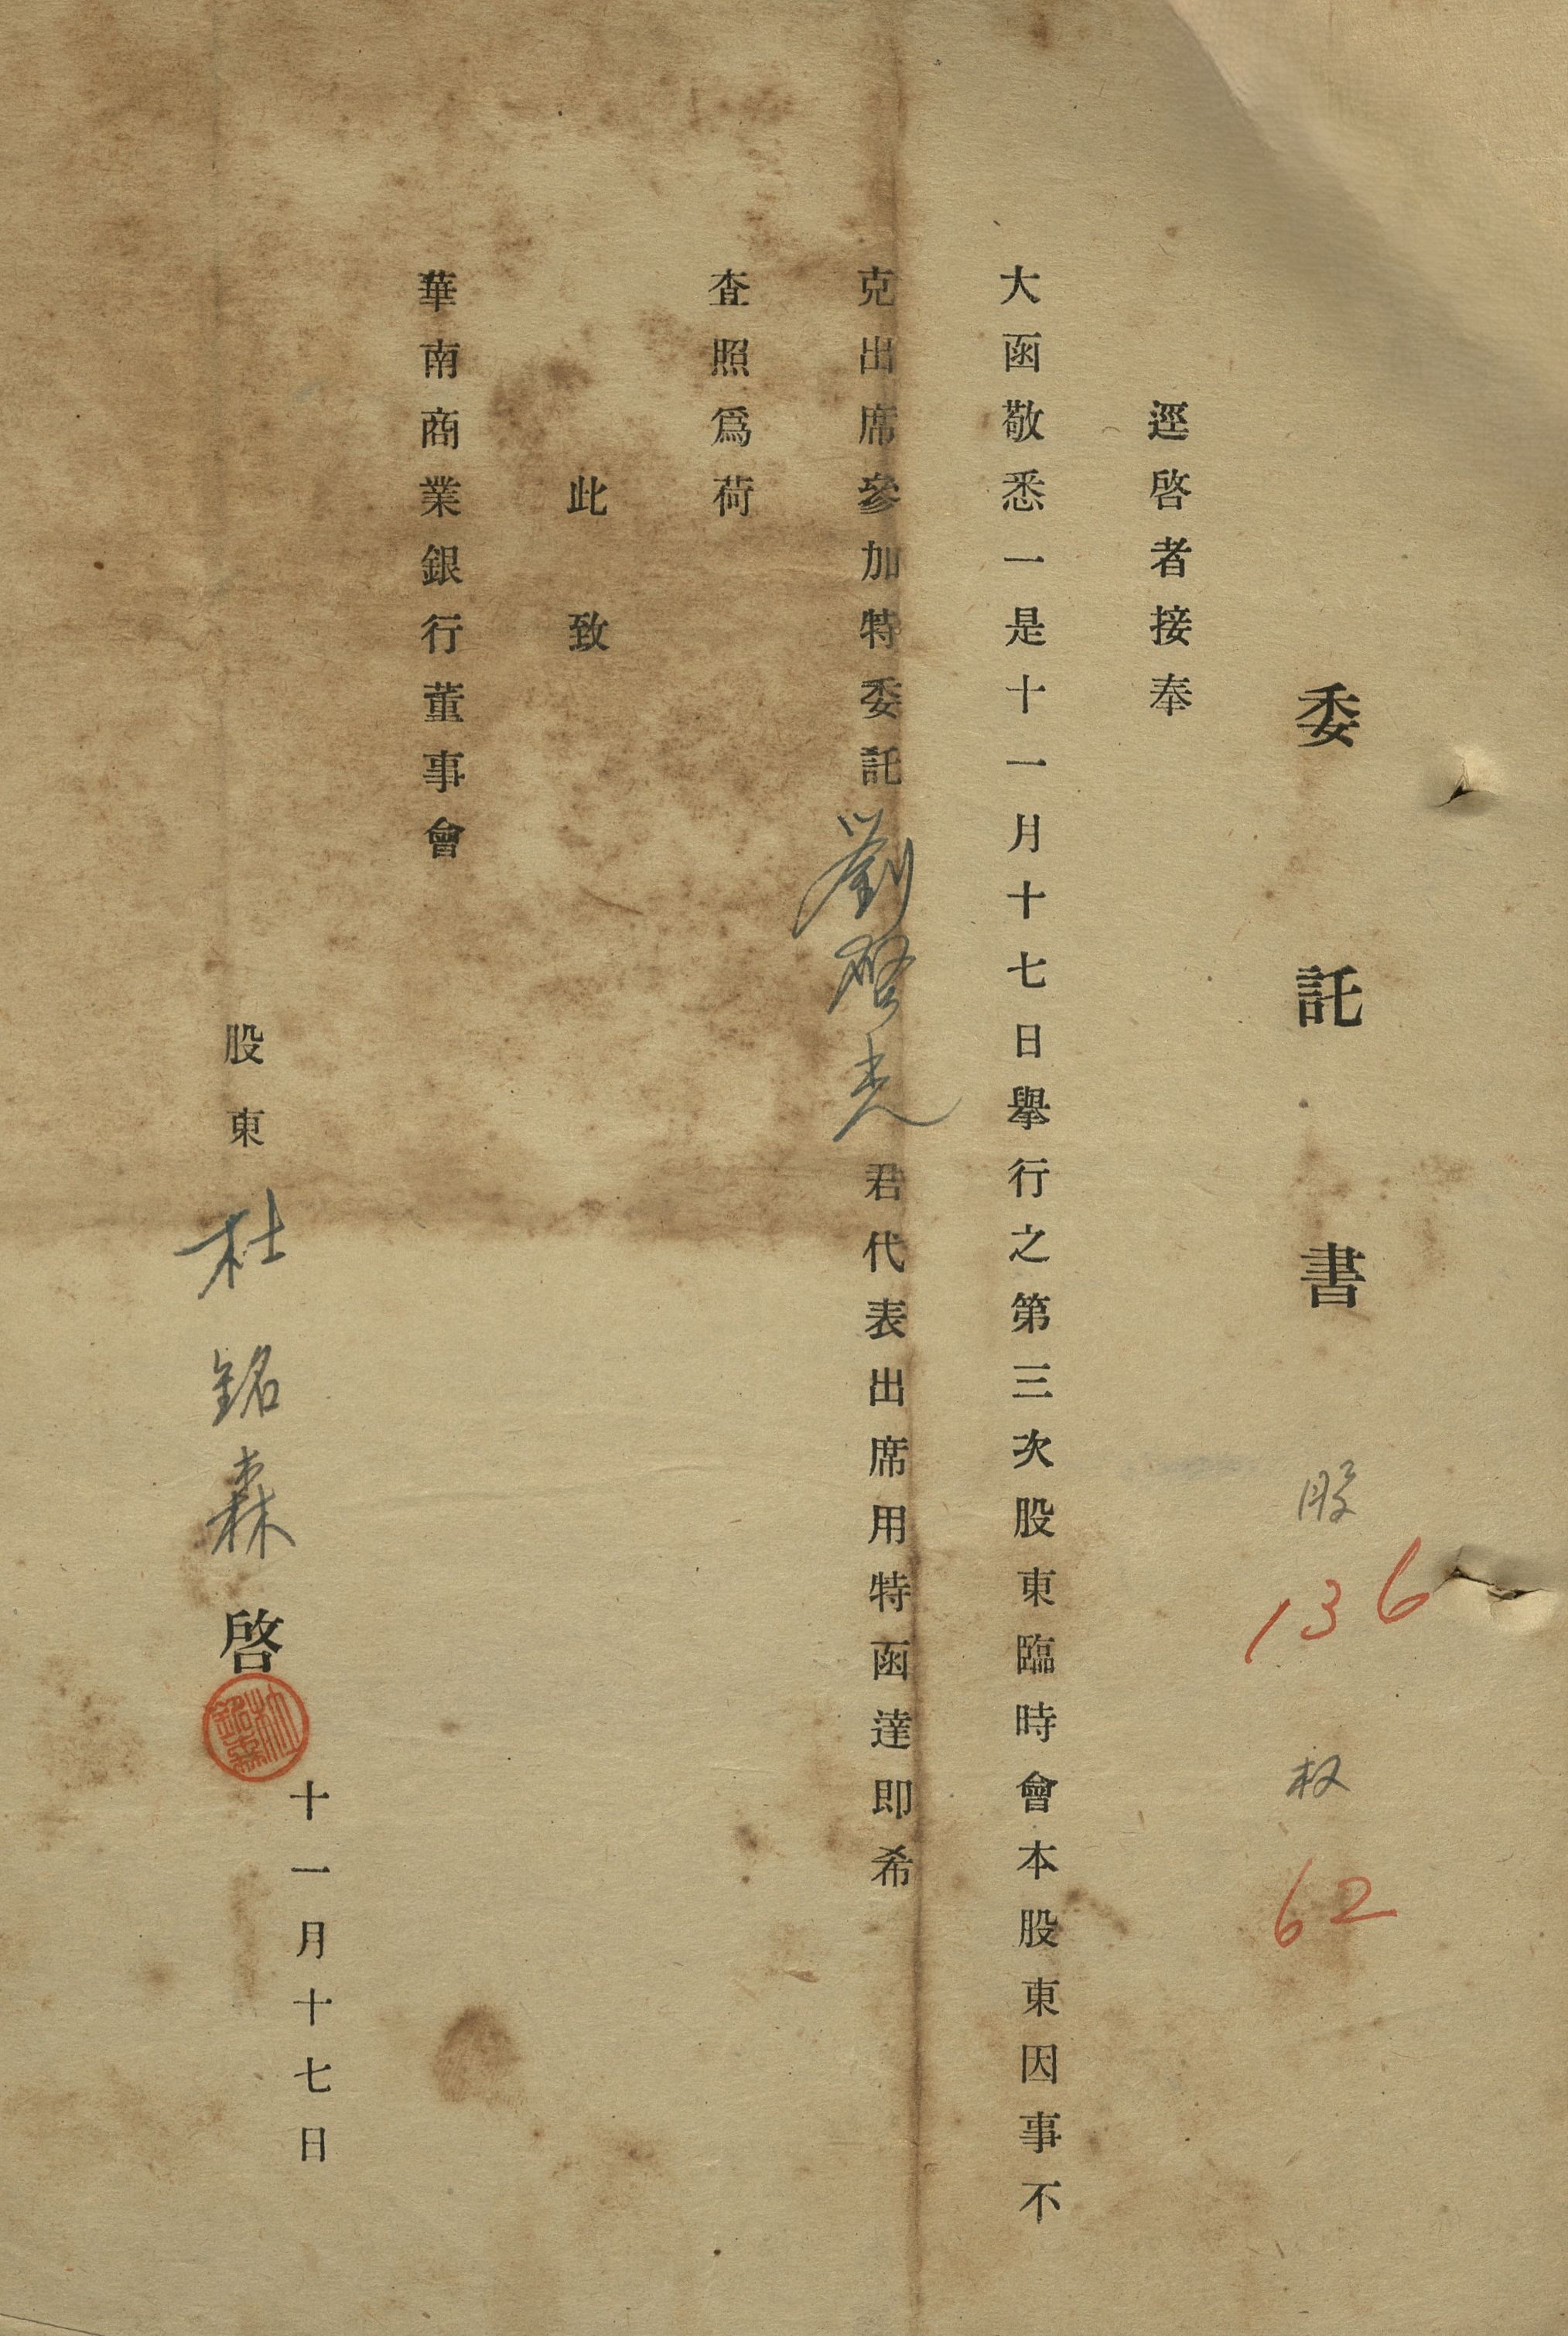 委託書 股 136 权 62
逕啓者接奉
大函敬悉一是十一月十七日擧行之第三次股東臨時會本股東因事不
克出席參加特委託劉啓光君代表出席用特函達即希
查照爲荷
此致
華南商業銀行董事會
十一月十七日
股東 杜銘森 啓
杜銘森